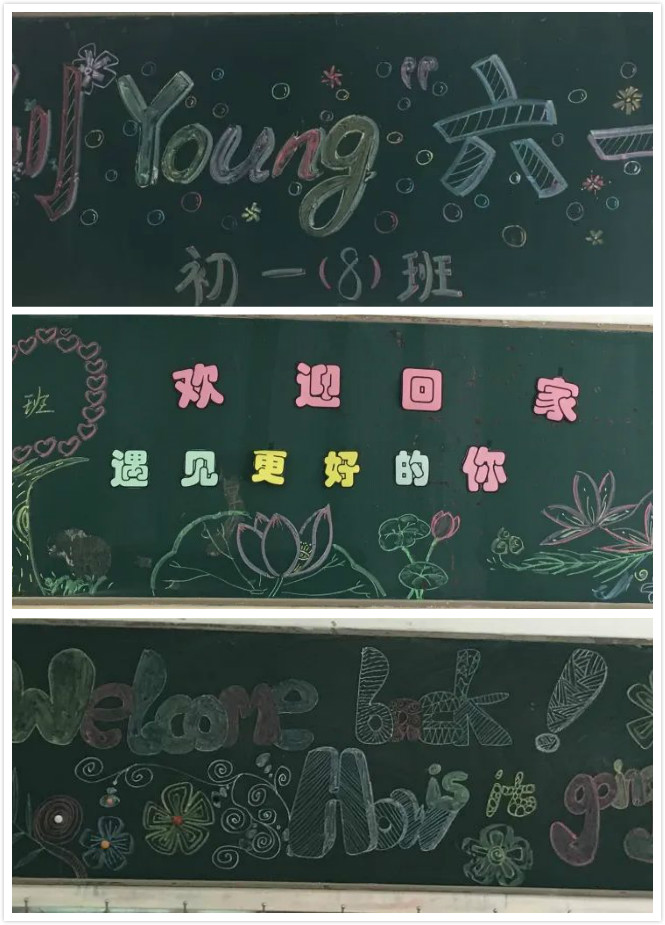 别Young “六一
初一(8)班
欢迎回家
班
遇见更好的你
Welcome back!
How is it going